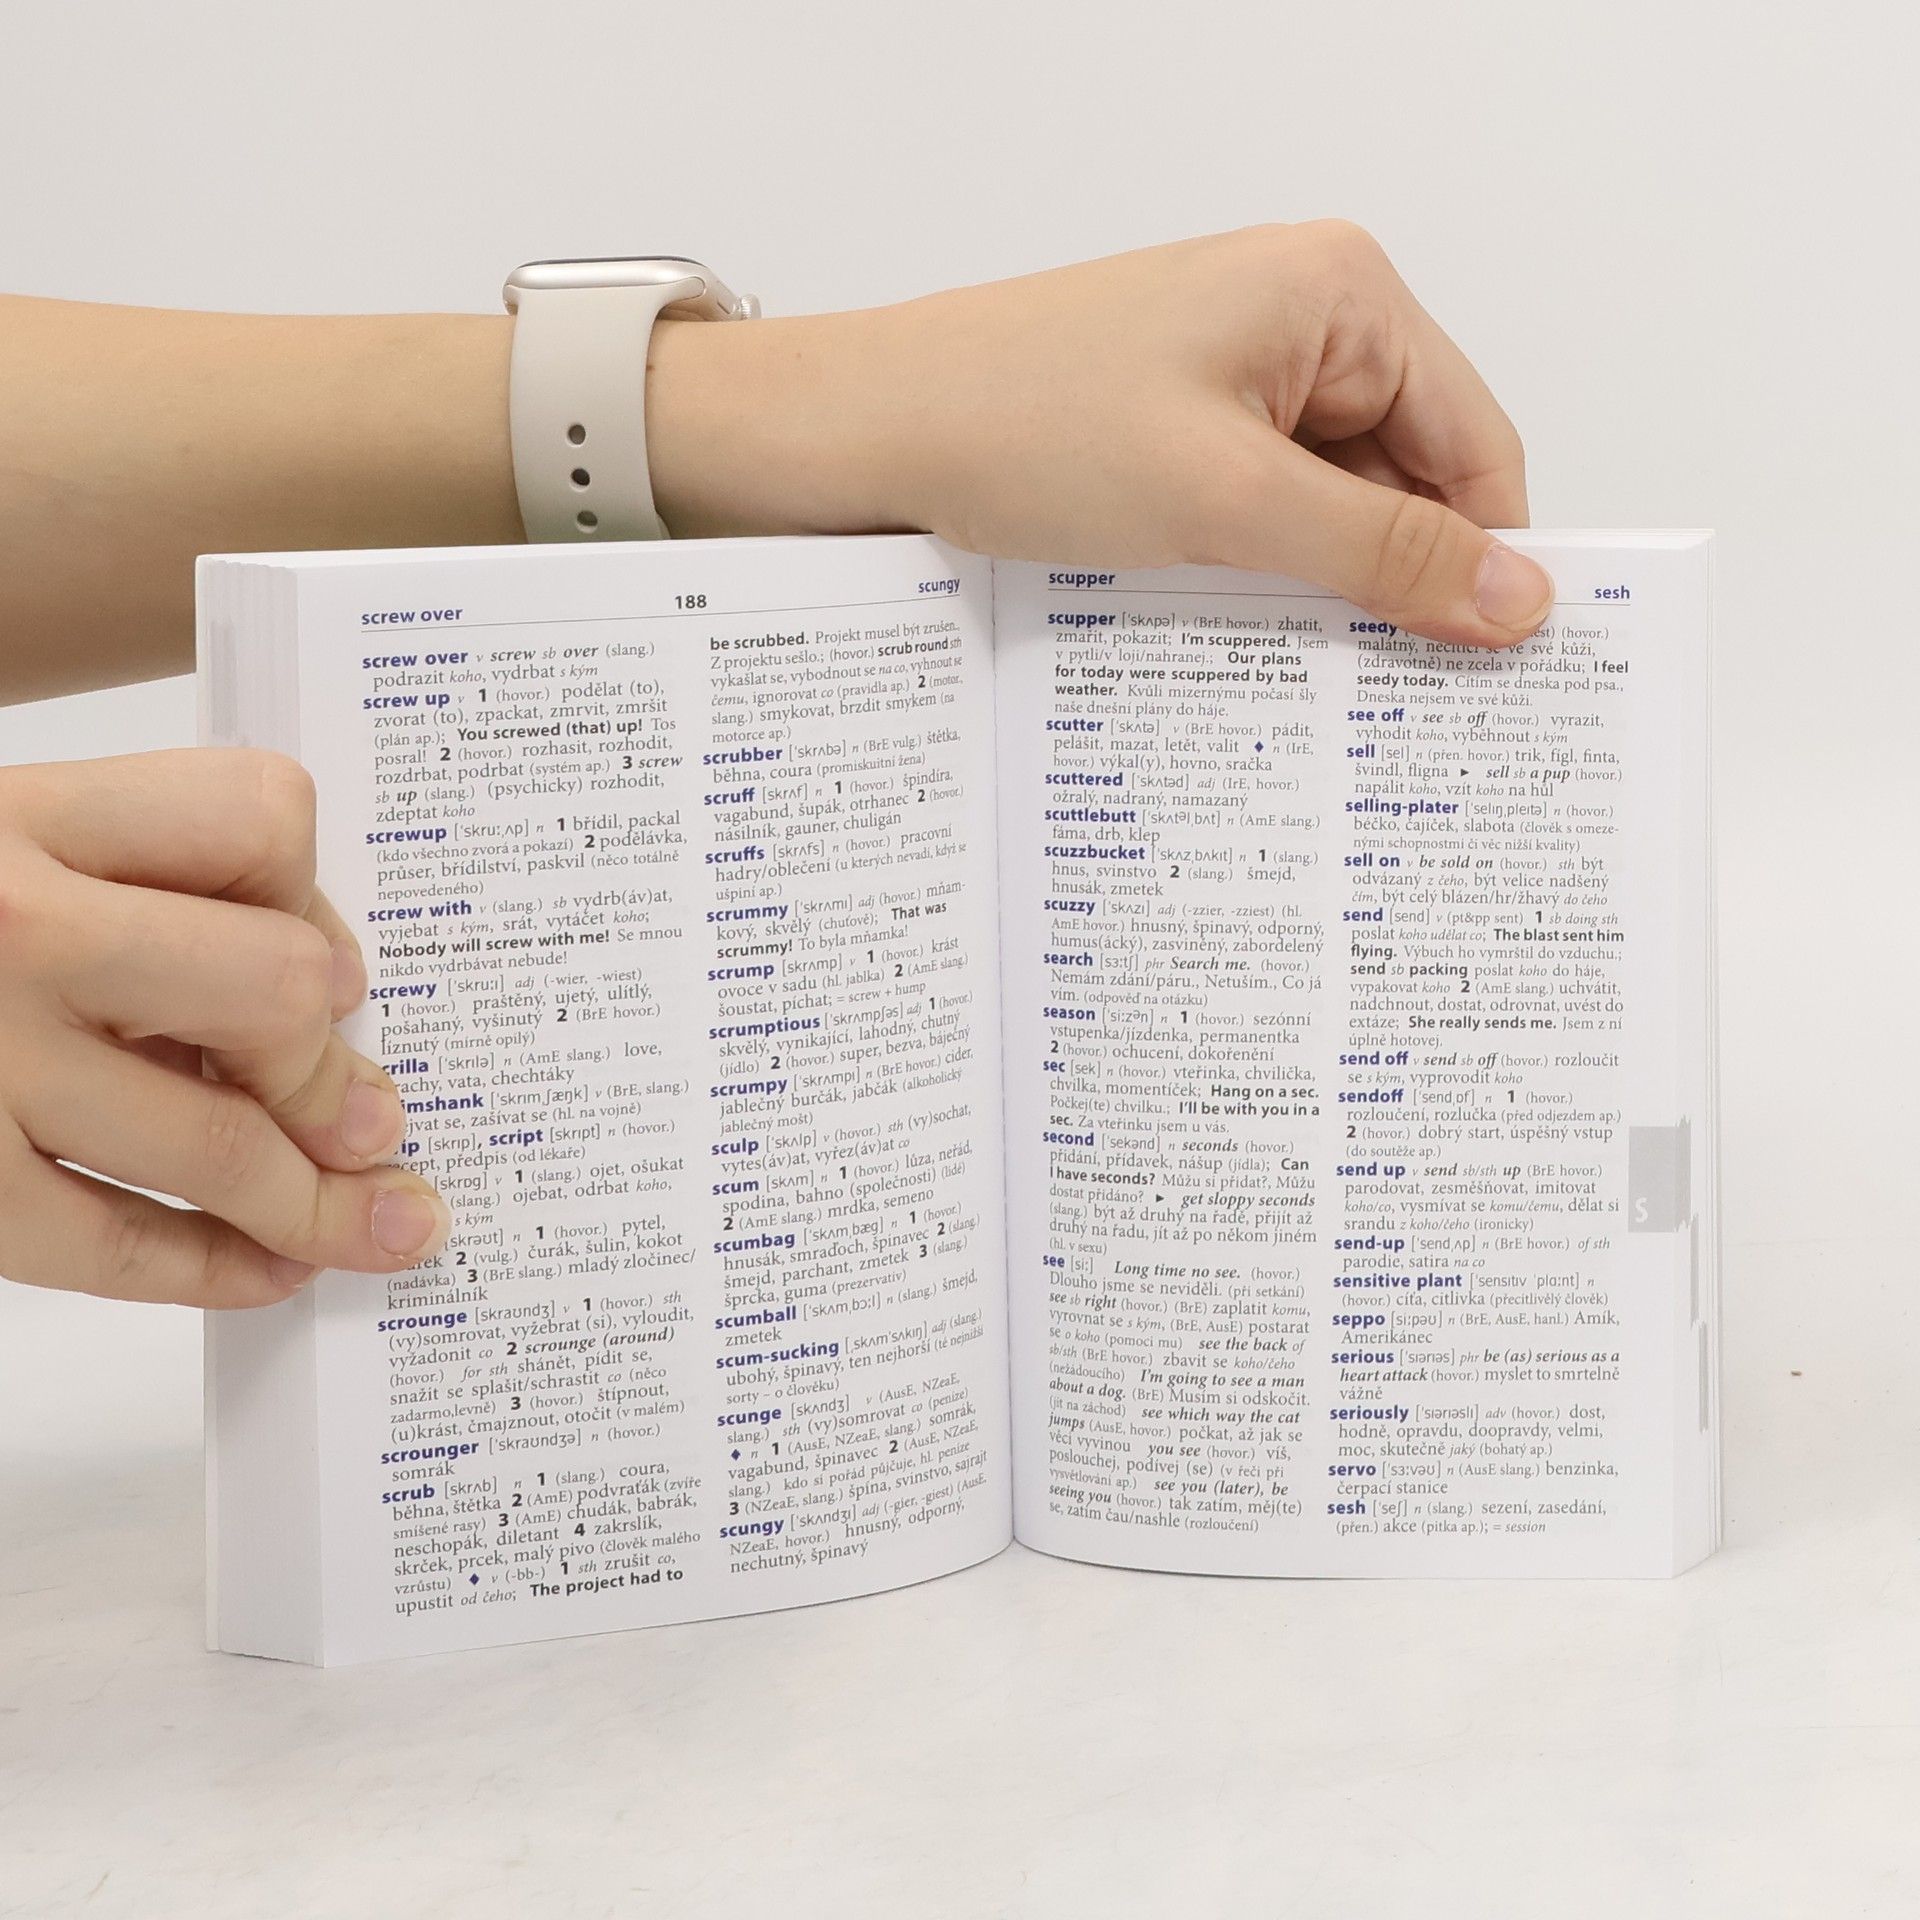 screw over
188
scungy
screw over v screw sb over (slang.)
podrazit koho, vydrbat s kým
screw up v 1 (hovor.) podělat (to),
zvorat (to), zpackat, zmrvit, zmršit
(plán ap.); You screwed (that) up! Tos
posral! 2 (hovor.) rozhasit, rozhodit,
rozdrbat, podrbat (systém ap.) 3 screw
sb up (slang.) (psychicky) rozhodit,
zdeptat koho
screwup ['skru:ˌʌp] n 1 břídil, packal
(kdo všechno zvorá a pokazí) 2 podělávka,
průser, břídilství, paskvil (něco totálně
nepovedeného)
screw with v (slang.) sb vydrb(áv)at,
vyjebat s kým, srát, vytáčet koho;
Nobody will screw with me! Se mnou
nikdo vydrbávat nebude!
screwy ['skru:ɪ] adj (-wier, -wiest)
1 (hovor.) praštěný, ujetý, ulítlý,
pošahaný, vyšinutý 2 (BrE hovor.)
líznutý (mírně opilý)
crilla ['skrɪlə] n (AmE slang.) love,
rachy, vata, chechtáky
imshank ['skrɪmˌʃæŋk] v (BrE, slang.)
ejvat se, zašívat se (hl. na vojně)
ip [skrɪp], script [skrɪpt] n (hovor.)
ecept, předpis (od lékaře)
[skrɒg] v 1 (slang.) ojet, ošukat
(slang.) ojebat, odrbat koho,
s kým
[skrəʊt] n 1 (hovor.) pytel,
urek 2 (vulg.) čurák, šulin, kokot
(nadávka) 3 (BrE slang.) mladý zločinec/
kriminálník
scrounge [skraʊndʒ] v 1 (hovor.) sth
(vy)somrovat, vyžebrat (si), vyloudit,
vyžadonit co 2 scrounge (around)
(hovor.) for sth shánět, pídit se,
snažit se splašit/schrastit co (něco
zadarmo,levně) 3 (hovor.) štípnout,
(u)krást, čmajznout, otočit (v malém)
scrounger ['skraʊndʒə] n (hovor.)
somrák
scrub [skrʌb] n 1 (slang.) coura,
běhna, štětka 2 (AmE) podvraťák (zvíře
smíšené rasy) 3 (AmE) chudák, babrák,
neschopák, diletant 4 zakrslík,
skrček, prcek, malý pivo (člověk malého
vzrůstu) ♦ v (-bb-) 1 sth zrušit co,
upustit od čeho; The project had to
be scrubbed. Projekt musel být zrušen.,
Z projektu sešlo.; (hovor.) scrub round sth
vykašlat se, vybodnout se na co, vyhnout se
čemu, ignorovat co (pravidla ap.) 2 (motor.,
slang.) smykovat, brzdit smykem (na
motorce ap.)
scrubber ['skrʌbə] n (BrE vulg.) štětka,
běhna, coura (promiskuitní žena)
scruff [skrʌf] n 1 (hovor.) špindíra,
vagabund, šupák, otrhanec 2 (hovor.)
násilník, gauner, chuligán
scruffs [skrʌfs] n (hovor.) pracovní
hadry/oblečení (u kterých nevadí, když se
ušpiní ap.)
scrummy ['skrʌmɪ] adj (hovor.) mňam-
kový, skvělý (chuťově); That was
scrummy! To byla mňamka!
scrump [skrʌmp] v 1 (hovor.) krást
ovoce v sadu (hl. jablka) 2 (AmE slang.)
šoustat, píchat; = screw + hump
scrumptious ['skrʌmpʃəs] adj 1 (hovor.)
skvělý, vynikající, lahodný, chutný
(jídlo) 2 (hovor.) super, bezva, báječný
scrumpy ['skrʌmpɪ] n (BrE hovor.) cider,
jablečný burčák, jabčák (alkoholický
jablečný mošt)
sculp ['skʌlp] v (hovor.) sth (vy)sochat,
vytes(áv)at, vyřez(áv)at co
scum [skʌm] n 1 (hovor.) lůza, neřád,
spodina, bahno (společnosti) (lidé)
2 (AmE slang.) mrdka, semeno
scumbag ['skʌmˌbæg] n 1 (hovor.)
hnusák, smraďoch, špinavec 2 (slang.)
šmejd, parchant, zmetek 3 (slang.)
šprcka, guma (prezervativ)
scumball ['skʌmˌbɔ:l] n (slang.) šmejd,
zmetek
scum-sucking [ˌskʌm'sʌkɪŋ] adj (slang.)
ubohý, špinavý, ten nejhorší (té nejnižší
sorty – o člověku)
scunge [skʌndʒ] v (AusE, NZeaE,
slang.) sth (vy)somrovat co (peníze)
♦ n 1 (AusE, NZeaE, slang.) somrák,
vagabund, špinavec 2 (AusE, NZeaE,
slang.) kdo si pořád půjčuje, hl. peníze
3 (NZeaE, slang.) špína, svinstvo, sajrajt
scungy ['skʌndʒɪ] adj (-gier, -giest) (AusE,
NZeaE, hovor.) hnusný, odporný,
nechutný, špinavý
scupper
sesh
scupper ['skʌpə] v (BrE hovor.) zhatit,
zmařit, pokazit; I'm scuppered. Jsem
v pytli/v loji/nahranej.; Our plans
for today were scuppered by bad
weather. Kvůli mizernýmu počasí šly
naše dnešní plány do háje.
scutter ['skʌtə] v (BrE hovor.) pádit,
pelášit, mazat, letět, valit ♦ n (IrE,
hovor.) výkal(y), hovno, sračka
scuttered ['skʌtəd] adj (IrE, hovor.)
ožralý, nadraný, namazaný
scuttlebutt ['skʌtəlˌbʌt] n (AmE slang.)
fáma, drb, klep
scuzzbucket ['skʌzˌbʌkɪt] n 1 (slang.)
hnus, svinstvo 2 (slang.) šmejd,
hnusák, zmetek
scuzzy ['skʌzɪ] adj (-zzier, -zziest) (hl.
AmE hovor.) hnusný, špinavý, odporný,
humus(ácký), zasviněný, zabordelený
search [sɜ:tʃ] phr Search me. (hovor.)
Nemám zdání/páru., Netuším., Co já
vím. (odpověď na otázku)
season ['si:zən] n 1 (hovor.) sezónní
vstupenka/jízdenka, permanentka
2 (hovor.) ochucení, dokořenění
sec [sek] n (hovor.) vteřinka, chvilička,
chvilka, momentíček; Hang on a sec.
Počkej(te) chvilku.; I'll be with you in a
sec. Za vteřinku jsem u vás.
second ['sekənd] n seconds (hovor.)
přidání, přídavek, nášup (jídla); Can
I have seconds? Můžu si přidat?, Můžu
dostat přidáno? ► get sloppy seconds
(slang.) být až druhý na řadě, přijít až
druhý na řadu, jít až po někom jiném
(hl. v sexu)
see [si:] Long time no see. (hovor.)
Dlouho jsme se neviděli. (při setkání)
see sb right (hovor.) (BrE) zaplatit komu,
vyrovnat se s kým, (BrE, AusE) postarat
se o koho (pomoci mu) see the back of
sb/sth (BrE hovor.) zbavit se koho/čeho
(nežádoucího) I'm going to see a man
about a dog. (BrE) Musím si odskočit.
(jít na záchod) see which way the cat
jumps (AusE, hovor.) počkat, až jak se
věci vyvinou you see (hovor.) víš,
poslouchej, podívej (se) (v řeči při
vysvětlování ap.) see you (later), be
seeing you (hovor.) tak zatím, měj(te)
se, zatím čau/nashle (rozloučení)
seedy est) (hovor.)
malátný, necítící se ve své kůži,
(zdravotně) ne zcela v pořádku; I feel
seedy today. Cítím se dneska pod psa.,
Dneska nejsem ve své kůži.
see off v see sb off (hovor.) vyrazit,
vyhodit koho, vyběhnout s kým
sell [sel] n (přen. hovor.) trik, fígl, finta,
švindl, fligna ► sell sb a pup (hovor.)
napálit koho, vzít koho na hůl
selling-plater ['selɪŋˌpleɪtə] n (hovor.)
béčko, čajíček, slabota (člověk s omeze-
nými schopnostmi či věc nižší kvality)
sell on v be sold on (hovor.) sth být
odvázaný z čeho, být velice nadšený
čím, být celý blázen/hr/žhavý do čeho
send [send] v (pt&pp sent) 1 sb doing sth
poslat koho udělat co; The blast sent him
flying. Výbuch ho vymrštil do vzduchu.;
send sb packing poslat koho do háje,
vypakovat koho 2 (AmE slang.) uchvátit,
nadchnout, dostat, odrovnat, uvést do
extáze; She really sends me. Jsem z ní
úplně hotovej.
send off v send sb off (hovor.) rozloučit
se s kým, vyprovodit koho
sendoff ['sendˌɒf] n 1 (hovor.)
rozloučení, rozlučka (před odjezdem ap.)
2 (hovor.) dobrý start, úspěšný vstup
(do soutěže ap.)
send up v send sb/sth up (BrE hovor.)
parodovat, zesměšňovat, imitovat
koho/co, vysmívat se komu/čemu, dělat si
srandu z koho/čeho (ironicky)
send-up ['sendˌʌp] n (BrE hovor.) of sth
parodie, satira na co
sensitive plant ['sensɪtɪv 'plɑ:nt] n
(hovor.) cíťa, citlivka (přecitlivělý člověk)
seppo [si:pəʊ] n (BrE, AusE, hanl.) Amík,
Amerikánec
serious ['sɪərɪəs] phr be (as) serious as a
heart attack (hovor.) myslet to smrtelně
vážně
seriously ['sɪərɪəslɪ] adv (hovor.) dost,
hodně, opravdu, doopravdy, velmi,
moc, skutečně jaký (bohatý ap.)
servo ['sɜ:vəʊ] n (AusE slang.) benzinka,
čerpací stanice
sesh ['seʃ] n (slang.) sezení, zasedání,
(přen.) akce (pitka ap.); = session
S